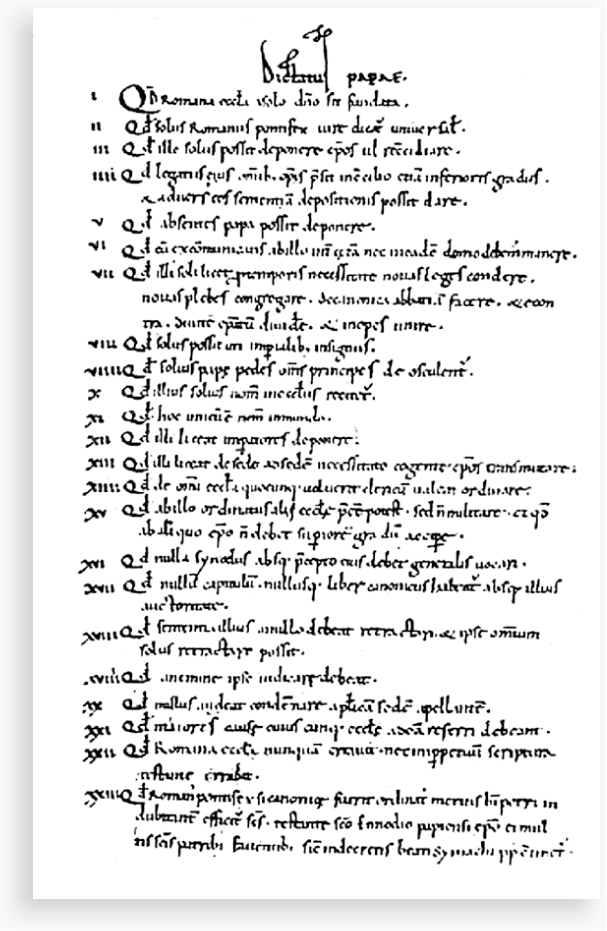 Dictatus papae.
i Qd Romana eccła a solo dn̄o sit fundata.
ii Qd solus Romanus pontifex iure dicat̄ universał.
iii Qd ille solus possit deponere ep̄os uł recc̄iliare.
iiii Qd legatus eius om̄ib; ep̄is p̄sit in c̄cilio etiā inferioris gradus.
& adversus eos sententiā depositionis possit dare.
v Qd absentes papa possit deponere.
vi Qd cū exc̄municatis ab illo int̄ cetera nec in eadē domo debem̄ manere.
vii Qd illi soli licet p̱ temporis necessitate novas leges condere.
novas plebes congregare. de canonica abbatiā facere. & econ
tra. divitē ep̄atum dividere. & inopes unire.
viii Qd solus possit uti imp̱ialib; insigniis.
viiii Qd solius papę pedes om̄s principes deosculent̄.
x Qd illius solius nom̄ in eccłiis recitet̄.
xi Qd hoc unicū ē nom̄ in mundo.
xii Qd illi liceat imp̱atores deponere.
xiii Qd illi liceat de sede ad sedē necessitate cogente ep̄os transmutare.
xiiii Qd de om̄i eccła quocunq; voluerit clericū valeat ordinare.
xv Qd ab illo ordinatus alii eccłę p̄ēē potest. sed n̄ militare. et qd̄
ab aliquo ep̄o n̄ debet superiorē gradū accipere.
xvi Qd nulla synodus absq; p̄cepto eius debet generalis vocari.
xvii Qd nullū capitulū nullusq; liber canonicus habeat̄ absq; illius
auctoritate.
xviii Qd sententia illius a nullo debeat retractari. & ipse omnium
solus retractare possit.
xviiii Qd a nemine ipse iudicare debeat.
xx Qd nullus audeat condēnare apłicā sedē apellantē.
xxi Qd maiores cause cuiuscunq; eccłę ad eā referri debeant.
xxii Qd Romana eccła nunquā erravit. nec inp̱petuū scriptura
testante errabit.
xxiii Qd Roman' pontifex si canonice fuerit ordinat' meritis b̄i petri in
dubitant̄ efficit̄ sc̄s. testante sc̄o Ennodio papiensi ep̄o ei mul
tis sc̄is patrib; faventib; sic̄ in decretis beati symachi pp̄ c̄tinet̄.